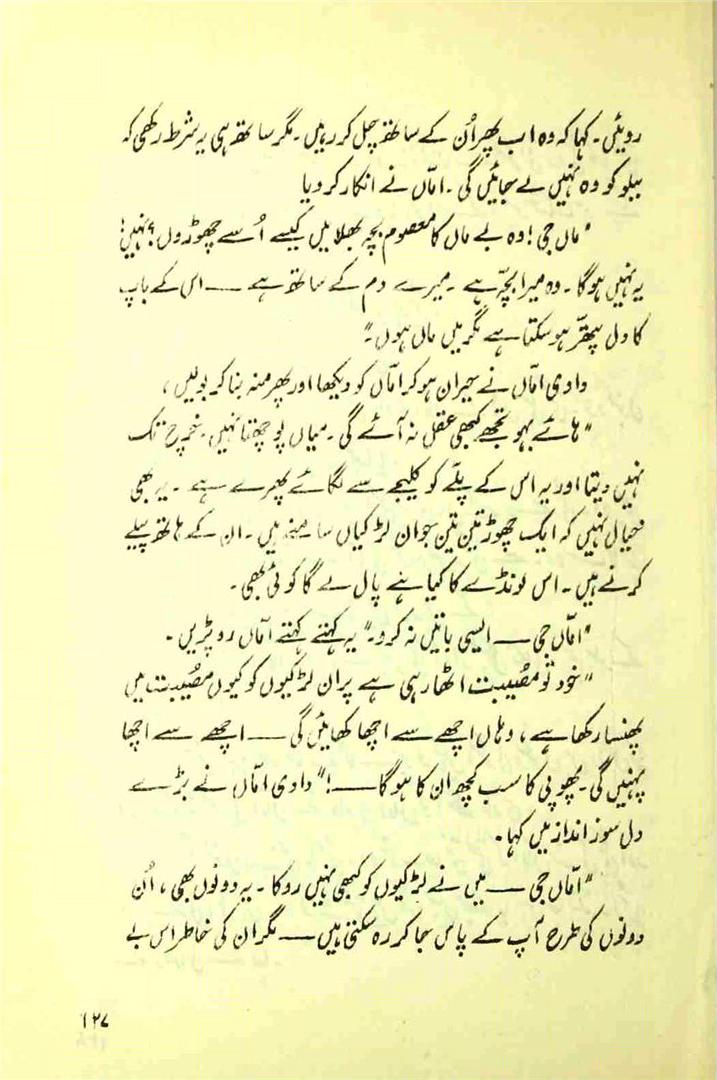 روئیں۔ کہا کہ وہ اب پھر اُن کے ساتھ چل کر رہیں۔ مگر ساتھ ہی یہ شرط رکھی کہ
ببلو کو وہ نہیں لے جائیں گی۔ امّاں نے انکار کر دیا
"ماں جی! وہ بے ماں کا معصوم بچہ بھلا میں کیسے اُسے چھوڑ دوں؟ نہیں!
یہ نہیں ہوگا۔ وہ میرا بچّہ ہے۔ میرے دم کے ساتھ ہے ــــ اس کے باپ
کا دل پتھّر ہو سکتا ہے مگر میں ماں ہوں۔"
دادی امّاں نے حیران ہو کر امّاں کو دیکھا اور پھر منہ بنا کر بولیں،
"ہائے بہو تجھے کبھی عقل نہ آئے گی۔ میاں پوچھتا نہیں۔ خرچ تک
نہیں دیتا اور یہ اس کے پلّے کو کلیجے سے لگائے پھرے ہے۔ یہ بھی
خیال نہیں کہ ایک چھوڑ تین تین جوان لڑکیاں سامنے ہیں۔ ان کے ہاتھ پیلے
کرنے ہیں۔ اس لونڈے کا کیا ہے پال لے گا کوئی بھی۔
"امّاں جی ــــ ایسی باتیں نہ کرو۔" یہ کہتے کہتے امّاں رو پڑیں۔
"خود تو مصُیبت اٹھا رہی ہے پر ان لڑکیوں کو کیوں مصُیبت میں
پھنسا رکھا ہے، وہاں اچھے سے اچھا کھائیں گی ــــ اچھے سے اچھا
پہنیں گی۔ پھوپی کا سب کچھ ان کا ہوگا ــــ!" دادی امّاں نے بڑے
دل سوز انداز میں کہا۔
"امّاں جی ــــ میں نے لڑکیوں کو کبھی نہیں روکا۔ یہ دونوں بھی، اُن
دونوں کی طرح آپ کے پاس جا کر رہ سکتی ہیں ــــ مگر ان کی خاطر اس بے
۱۲۷